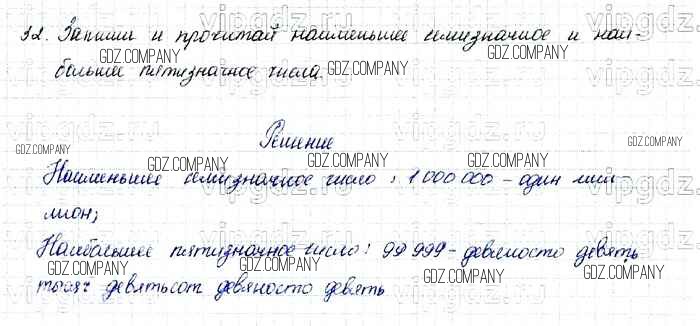 32. Запиши и прочитай наименьшее семизначное и наи-
большее пятизначное числа.
Решение
Наименьшее семизначное число: 1 000 000 - один мил-
лион;
Наибольшее пятизначное число: 99 999 - девяносто девять
тысяч девятьсот девяносто девять
GDZ.COMPANY
vipgdz.com